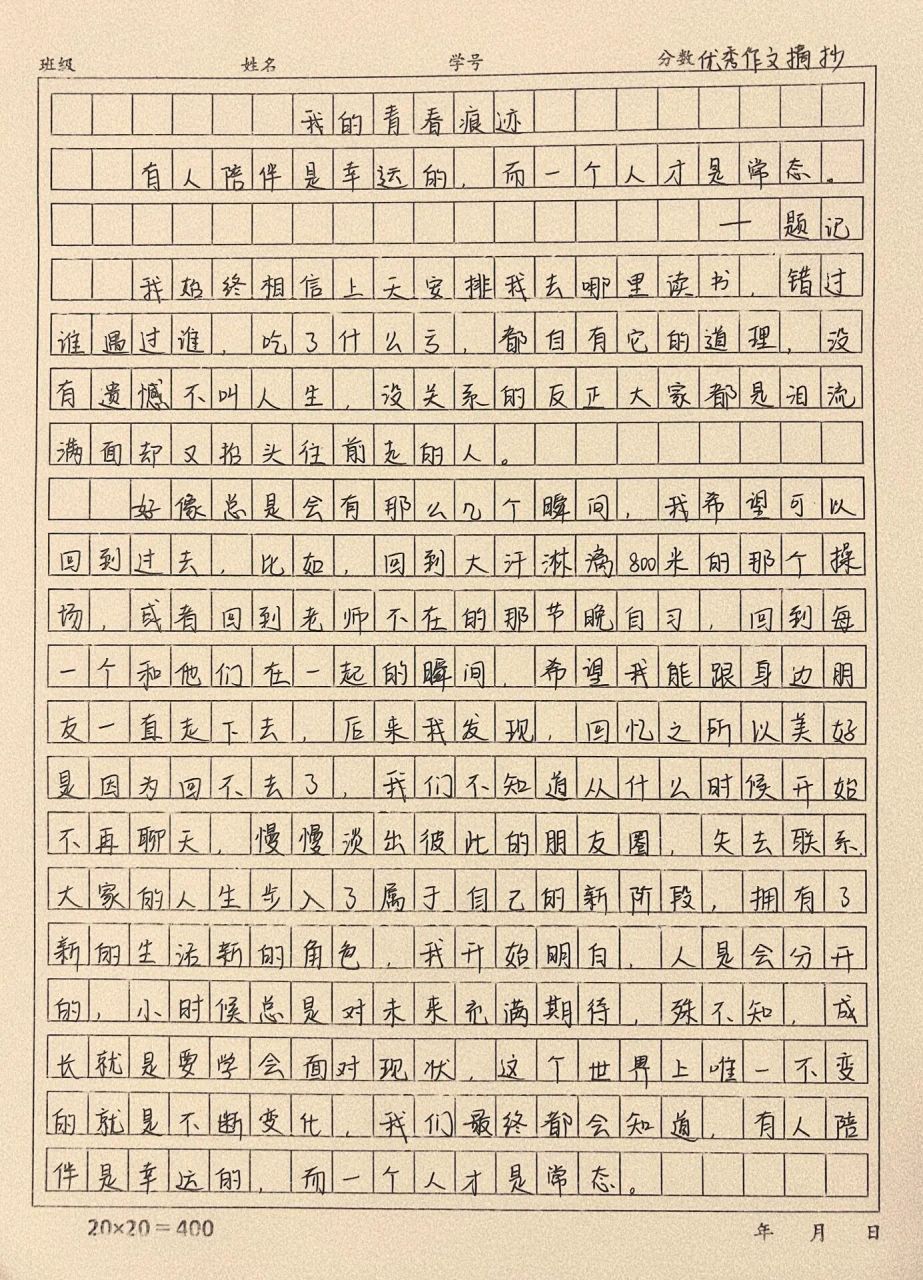 班级 姓名 学号 分数 优秀作文摘抄
我的青春痕迹
有人陪伴是幸运的，而一个人才是常态。
—题记
我始终相信上天安排我去哪里读书，错过
谁遇过谁，吃了什么亏，都自有它的道理，没
有遗憾不叫人生，没关系的反正大家都是泪流
满面却又抬头往前走的人。
好像总是会有那么几个瞬间，我希望可以
回到过去，比如，回到大汗淋漓800米的那个操
场，或者回到老师不在的那节晚自习，回到每
一个和他们在一起的瞬间，希望我能跟身边朋
友一直走下去，后来我发现，回忆之所以美好
是因为回不去了，我们不知道从什么时候开始
不再聊天，慢慢淡出彼此的朋友圈，失去联系.
大家的人生步入了属于自己的新阶段，拥有了
新的生活新的角色，我开始明白，人是会分开
的，小时候总是对未来充满期待，殊不知，成
长就是要学会面对现状，这个世界上唯一不变
的就是不断变化，我们最终都会知道，有人陪
伴是幸运的，而一个人才是常态。
20×20=400 年 月 日